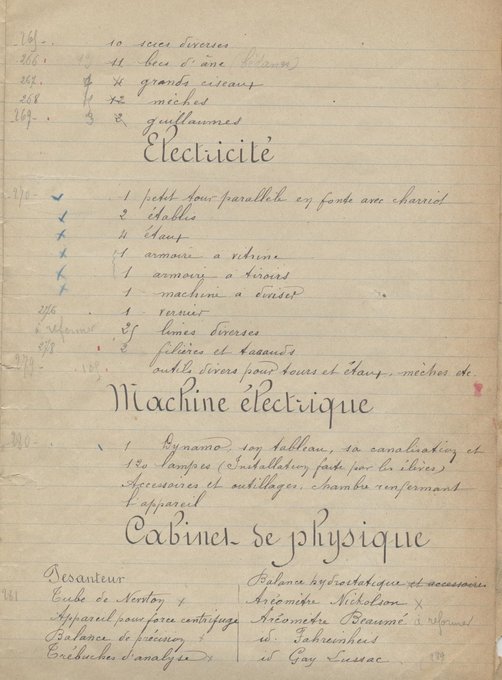 265 - 10 scies diverses
266 11 becs d'âne (bédanes)
267 4 grands ciseaux
268 12 mèches
269 - 3 2 guillaumes
Electricité
270 - 1 petit tour parallèle en fonte avec charriot
2 établis
4 étaux
1 armoire a vitrine
1 armoire a tiroirs
1 machine a diviser
276 1 vernier
a réformer 25 limes diverses
278 2 filières et tarauds
279 outils divers pour tours et étaux, mèches etc.
Machine électrique
280 - 1 Dynamo, son tableau, sa canalisation et
120 lampes (Installation faite par les élèves)
Accessoires et outillages, chambre renfermant
l'appareil
Cabinet de physique
Pesanteur
281 Tube de Newton x
Appareil pour force centrifuge
Balance de précision x
Trébuchet d'analyse x
Balance hydrostatique et accessoires
Aréomètre Nickolson x
Aréomètre Beaumé a réformer
id. Fahrenheit
id Gay Lussac